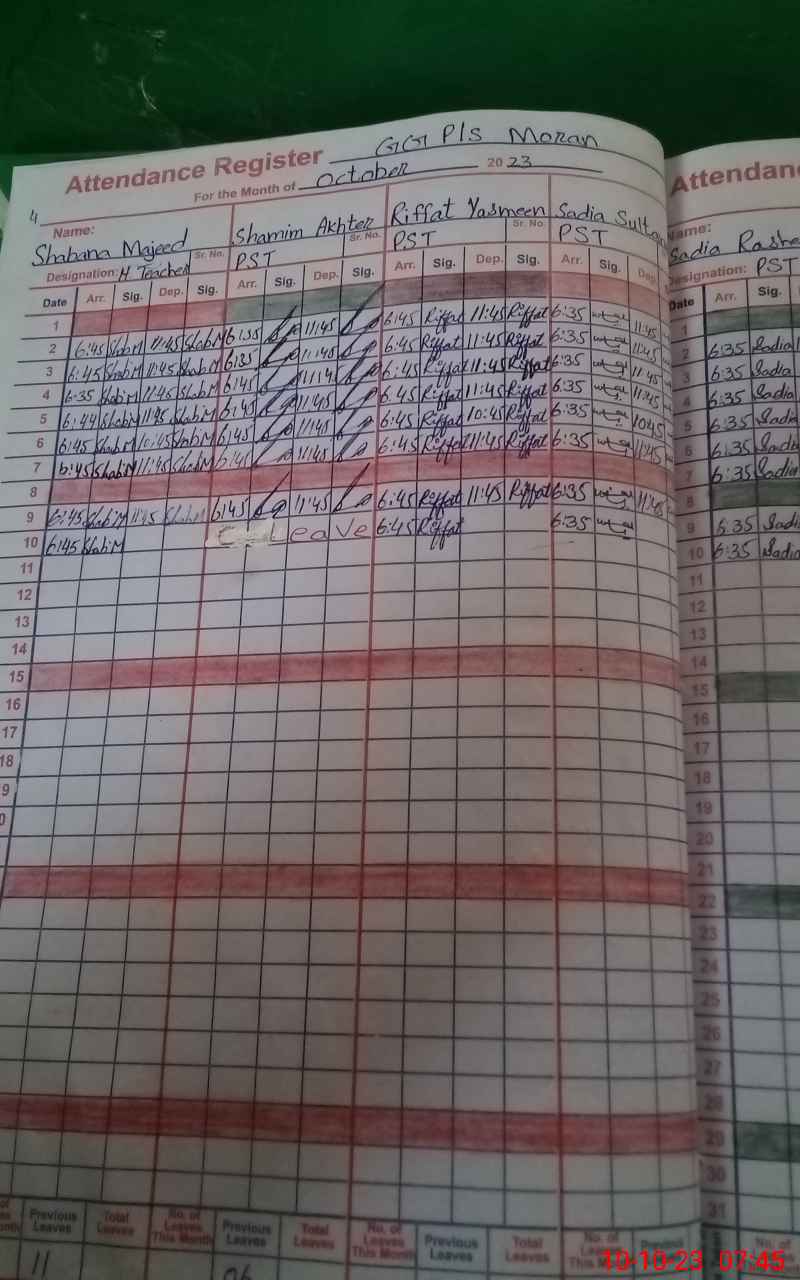 GG P/s Moran
Attendance Register
For the Month of October 2023
4
Name: Shabana Majeed Sr. No. Shamim Akhter Sr. No. Riffat Yasmeen Sr. No. Sadia Sultan
Designation: H Teacher PST PST PST
Date Arr. Sig. Dep. Sig. Arr. Sig. Dep. Sig. Arr. Sig. Dep. Sig. Arr. Sig. Dep.
1
2 6:45 ShabM 11:45 ShabM 6:35 11:45 6:45 Riffat 11:45 Riffat 6:35 11:45
3 6:45 ShabM 11:45 ShabM 6:35 11:45 6:45 Riffat 11:45 Riffat 6:35 11:45
4 6:35 ShabM 11:45 ShabM 6:45 6:45 Riffat 11:45 Riffat 6:35 11:45
5 6:44 ShabM 11:45 ShabM 6:45 11:45 6:45 Riffat 11:45 Riffat 6:35 11:45
6 6:45 ShabM 10:45 ShabM 6:45 11:45 6:45 Riffat 10:45 Riffat 6:35 10:45
7 6:45 ShabM 11:45 ShabM 6:45 11:45 6:45 Riffat 11:45 Riffat 6:35 11:45
8
9 6:45 ShabM 11:45 ShabM 6:45 11:45 6:45 Riffat 11:45 Riffat 6:35 11:45
10 6:45 ShabM Leave 6:45 Riffat 6:35
11
12
13
14
15
16
17
18
9
0
Previous Leaves Total Leaves No. of Leaves This Month Previous Leaves Total Leaves No. of Leaves This Month Previous Leaves Total Leaves No. of
11 06
Attendan
Name:
Sadia Rashe
Designation: PST
Date Arr. Sig.
1
2 6:35 Sadia
3 6:35 Sadia
4 6:35 Sadia
5 6:35 Sadia
6 6:35 Sadia
7 6:35 Sadia
8
9 6:35 Sadi
10 6:35 Sadia
11
12
13
14
15
16
17
18
19
20
21
22
23
24
25
26
27
28
29
30
31
No. of
10-10-23 07:45